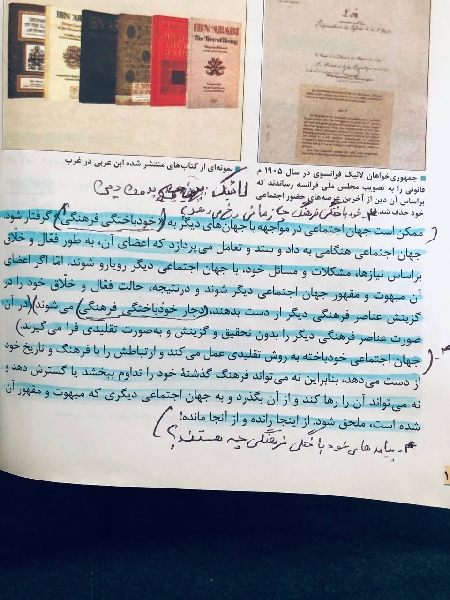 IBN 'ARABI
The Tree of Being
■ جمهوری‌خواهان لائیک فرانسوی در سال ۱۹۰۵ م
قانونی را به تصویب مجلس ملی فرانسه رساندند که
براساس آن دین از آخرین عرصه‌های حضور اجتماعی
خود حذف شد.
■ نمونه‌ای از کتاب‌های منتشر شده ابن عربی در غرب
لائیک: بدون دین
ممکن است جهان اجتماعی در مواجهه با جهان‌های دیگر به (خودباختگی فرهنگی) گرفتار شود.
جهان اجتماعی هنگامی به داد و ستد و تعامل می‌پردازد که اعضای آن، به طور فعّال و خلّاق
براساس نیازها، مشکلات و مسائل خود، با جهان اجتماعی دیگر روبارو شوند. اما اگر اعضای
آن مبهوت و مقهور جهان اجتماعی دیگر شوند و درنتیجه، حالت فعّال و خلّاق خود را در
گزینش عناصر فرهنگی دیگر از دست بدهند، (دچار خودباختگی فرهنگی) می‌شوند) (در آن
صورت عناصر فرهنگی دیگر را بدون تحقیق و گزینش و به‌صورت تقلیدی فرا می‌گیرند.)
جهان اجتماعی خودباخته به روش تقلیدی عمل می‌کند و ارتباطش را با فرهنگ و تاریخ خود
از دست می‌دهد، بنابراین نه می‌تواند فرهنگ گذشتهٔ خود را تداوم ببخشد یا گسترش دهد و
نه می‌تواند آن را رها کند و از آن بگذرد و به جهان اجتماعی دیگری که مبهوت و مقهور آن
شده است، ملحق شود. از اینجا رانده و از آنجا مانده!
۴- پیامدهای خودباختگی فرهنگی چه هستند؟